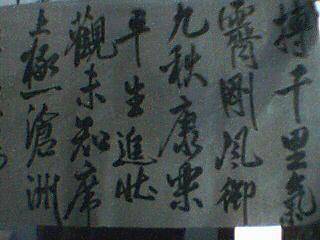 搏千里氣
霽剛風御
九秋康樂
平生追壯
觀未知席
上極滄洲